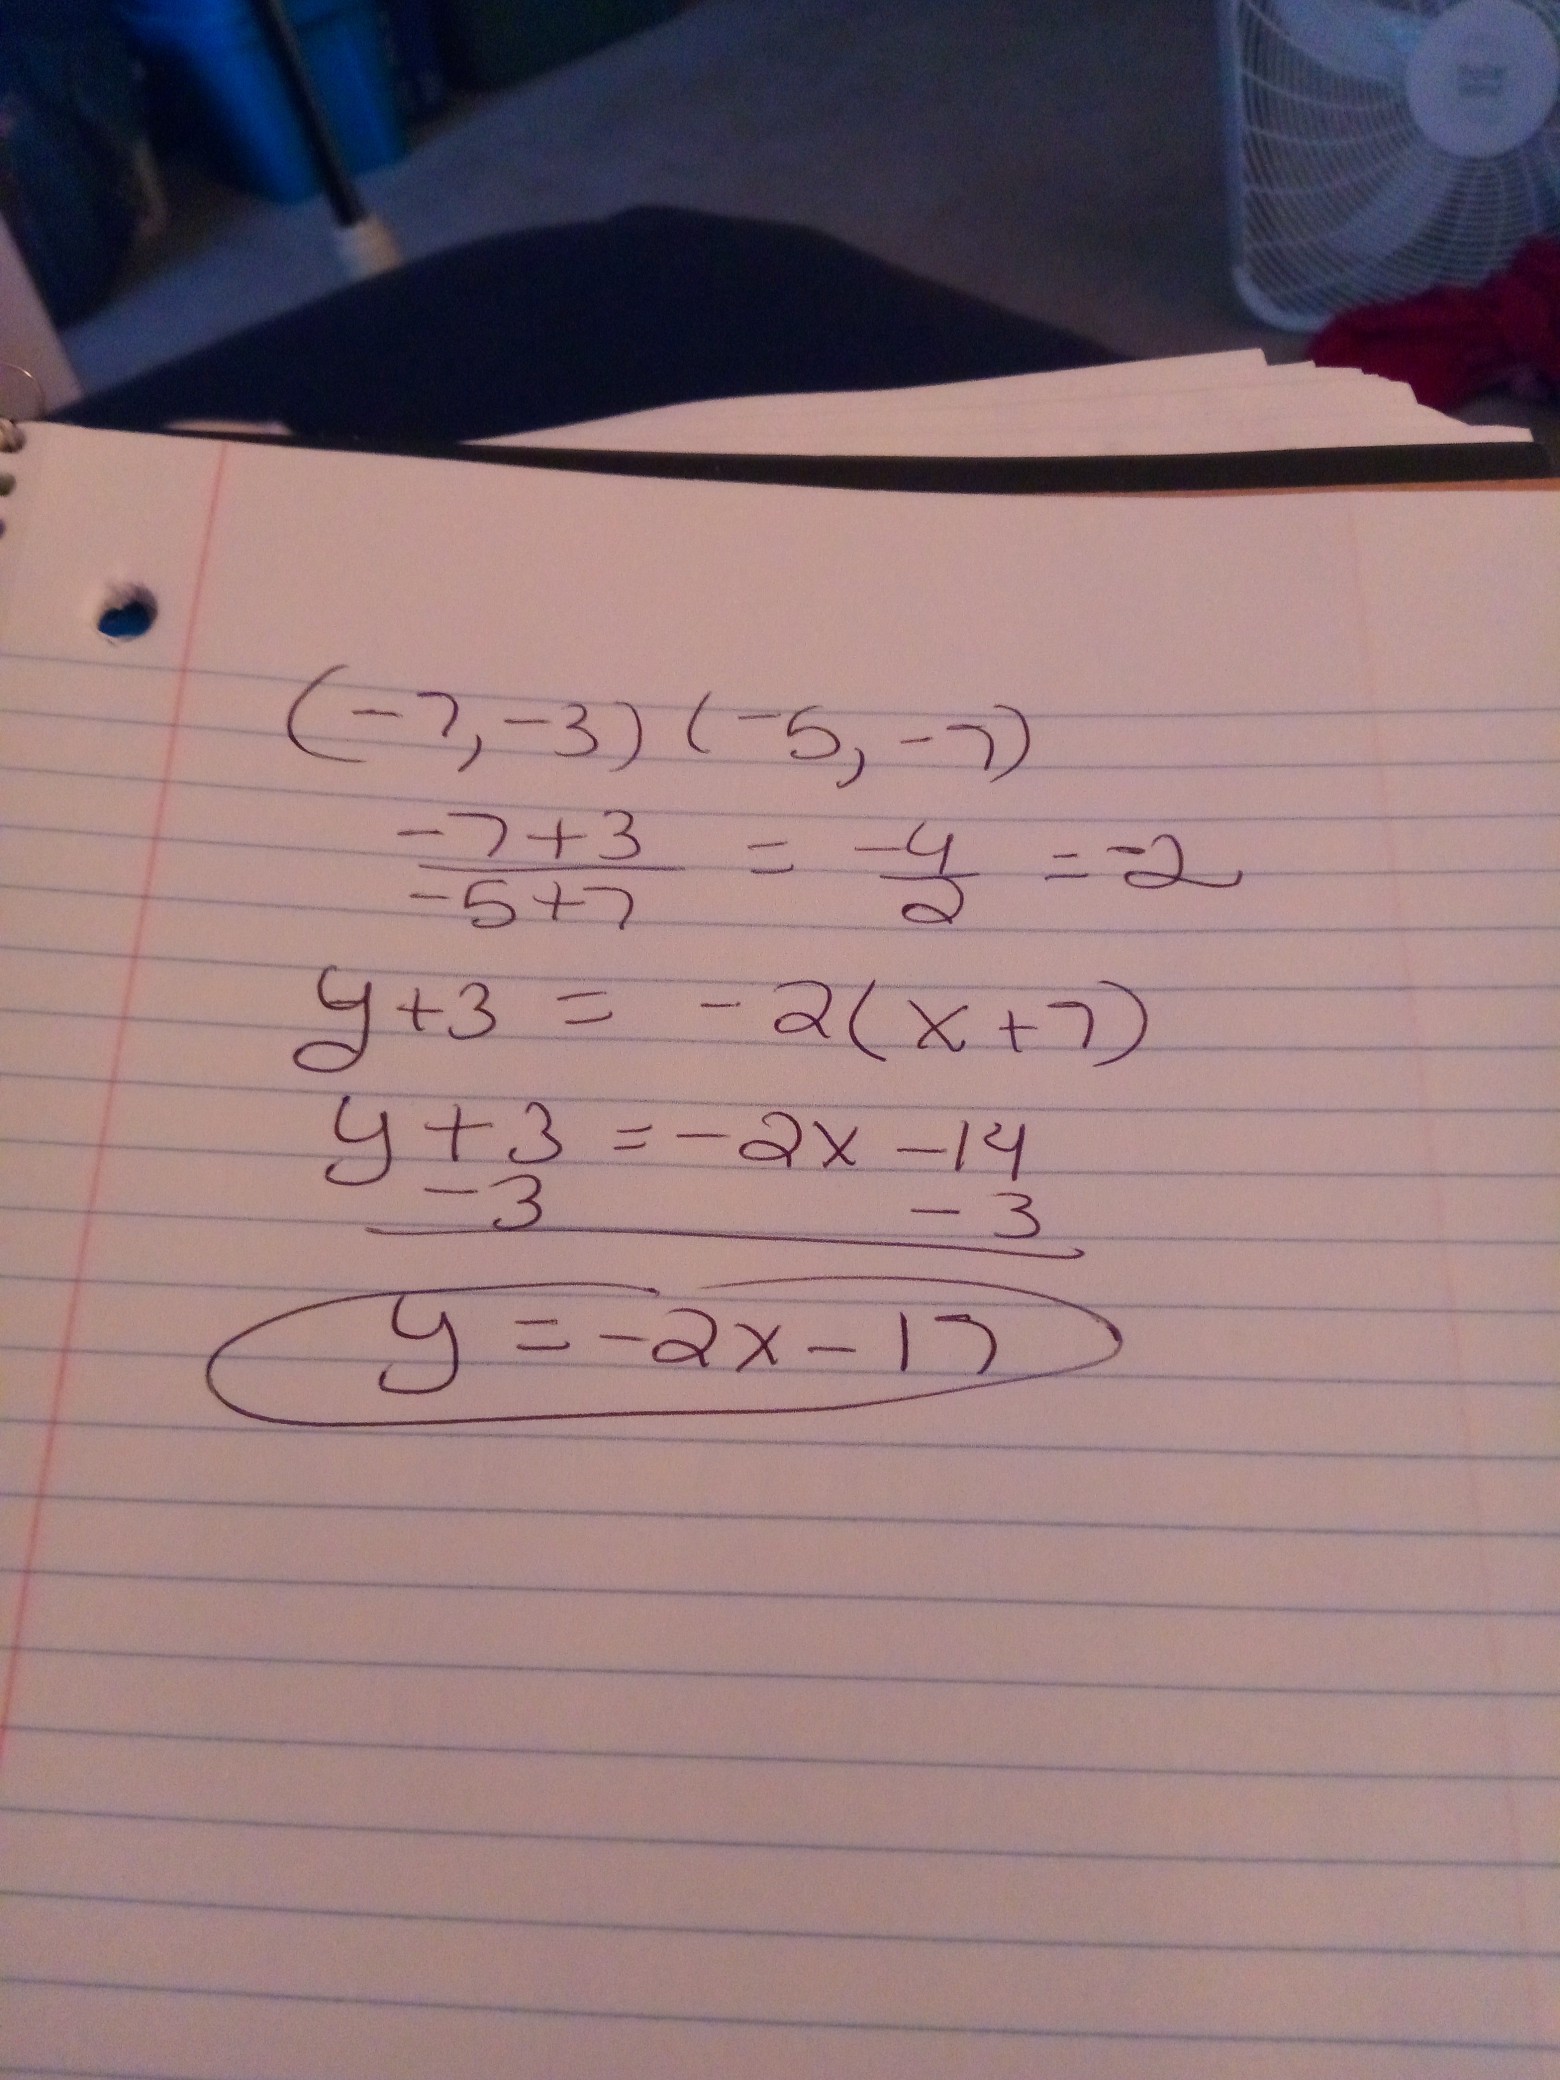 (-7, -3) (-5, -7)
-7+3 / -5+7 = -4/2 = -2
y+3 = -2(x+7)
y+3 = -2x -14
-3 -3
y = -2x - 17